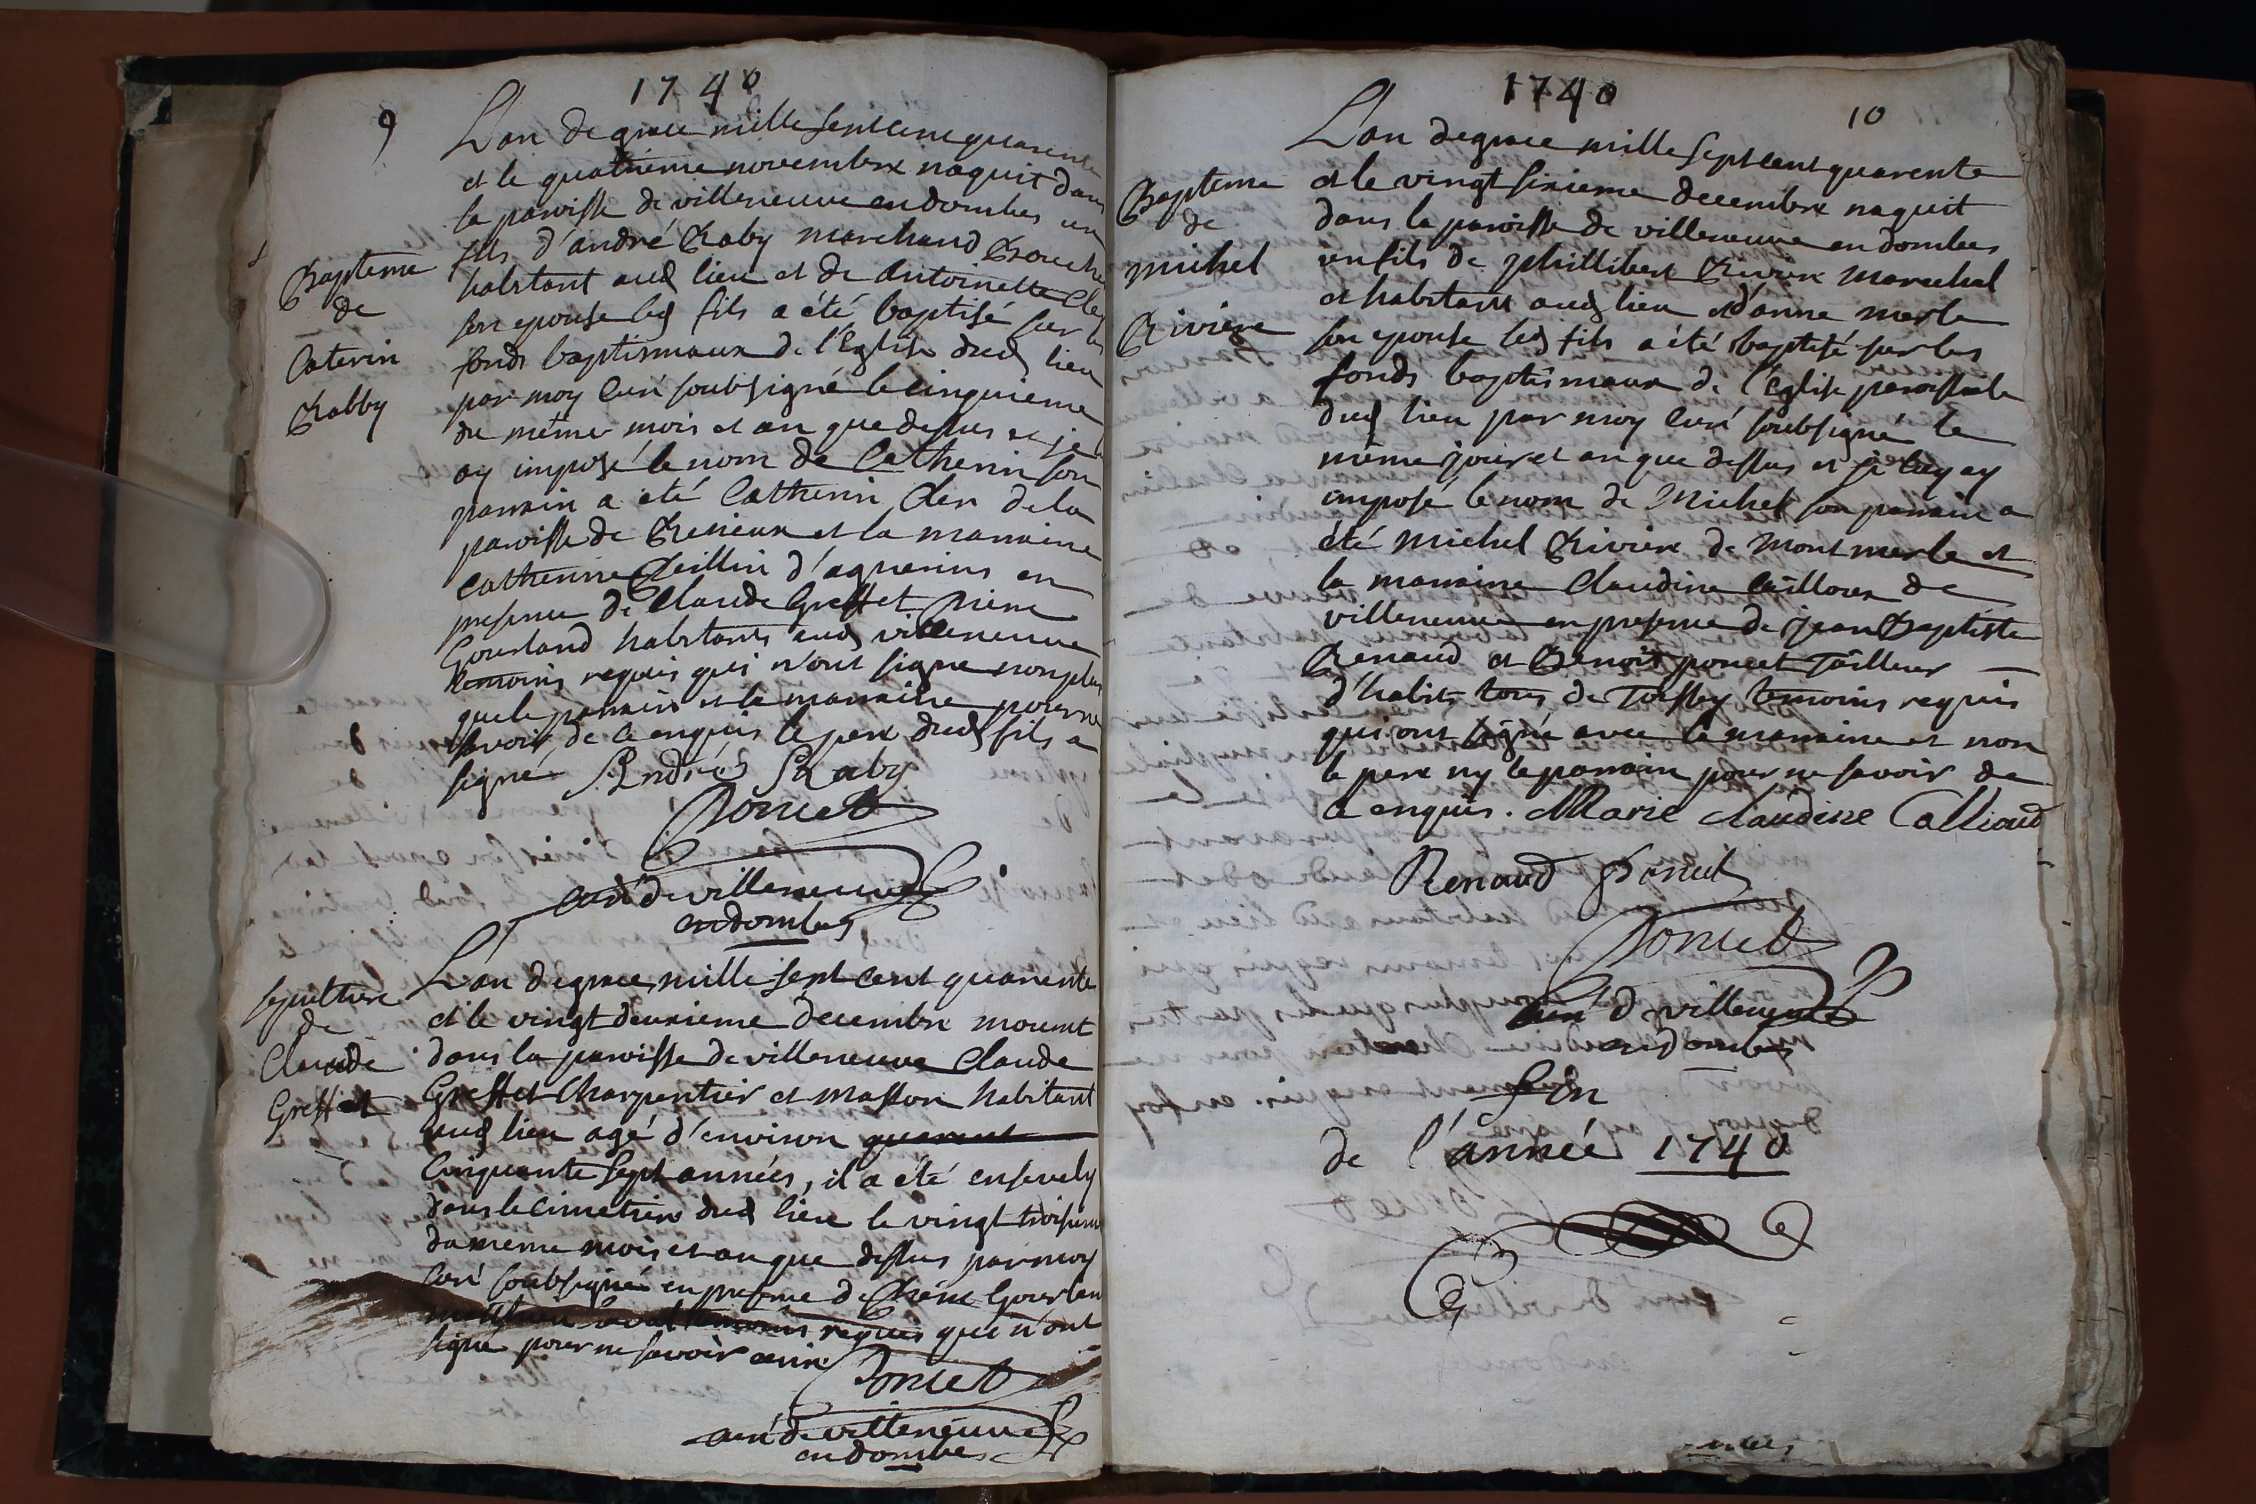 1740
9
L'an de grace mille sept cent quarente
et le quatrieme novembre naquit dans
la paroisse de villeneuve en dombes un
fils d'andré Raby marchand Bouche
habitant aud lieu et de Antoinette Cler
son epouse led fils a été baptisé sur les
fonds baptismaux de l'Eglise dud lieu
par moy curé soubsigné le cinquieme
du même mois et an que dessus et je l
ay imposé le nom de Catherin son
parrain a été Catherin Cler de la
paroisse de et la marraine
Catherine d'agnerins en
presence de Claude Greffet Piere
Gourland habitants aud villeneuve
temoins requis qui n'ont signe non plus
que le parrain et la marraine pour ne
savoir de ce enquis le pere dud fils a
signé André Raby
Poncet
curé de villeneuve
en dombes
Bapteme
de
Caterin
Rabby
L'an de grace mille sept cent quarente
et le vingt deuxieme decembre mourut
dans la paroisse de villeneuve Claude
Greffet Charpentier et masson habitant
aud lieu agé d'environ quarent
cinquante sept années, il a été ensevely
dans le cimetiere dud lieu le vingt troisieme
du meme mois et an que dessus par moy
curé soubsigné en presence de Piere Gourlan
temoins requis qui n'ont
signe pour ne savoir
Poncet
curé de villeneuve
en dombes
sepulture
de
Claude
Greffet
1740
10
L'an de grace mille sept cent quarente
et le vingt sixieme decembre naquit
dans la paroisse de villeneuve en dombes
un fils de phillibert Riviere marechal
et habitant aud lieu et d'anne merle
son epouse led fils a été baptisé sur les
fonds baptismaux de l'Eglise paroissiale
dud lieu par moy curé soubsigné le
même jour et an que dessus et je luy ay
imposé le nom de Michel son parrain a
été Michel Riviere de Montmerle et
la marraine Claudine de
villeneuve en presence de jean Baptiste
Renaud et Benoit poncet Tailleur
d'habits tous de Toissey temoins requis
qui ont signé avec la marraine et non
le pere ny le parrain pour ne savoir de
ce enquis. Marie Claudine Calliaud
Renaud Poncet
Poncet
curé d villeneuve
en dombes
Fin
de l'année 1740
Bapteme
de
michel
Riviere